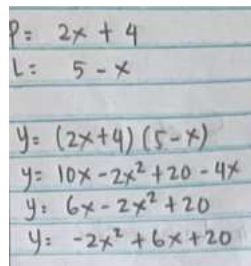 P: 2x + 4
L: 5 - x
y= (2x+4) (5-x)
y= 10x - 2x² + 20 - 4x
y: 6x - 2x² + 20
y: -2x² + 6x + 20